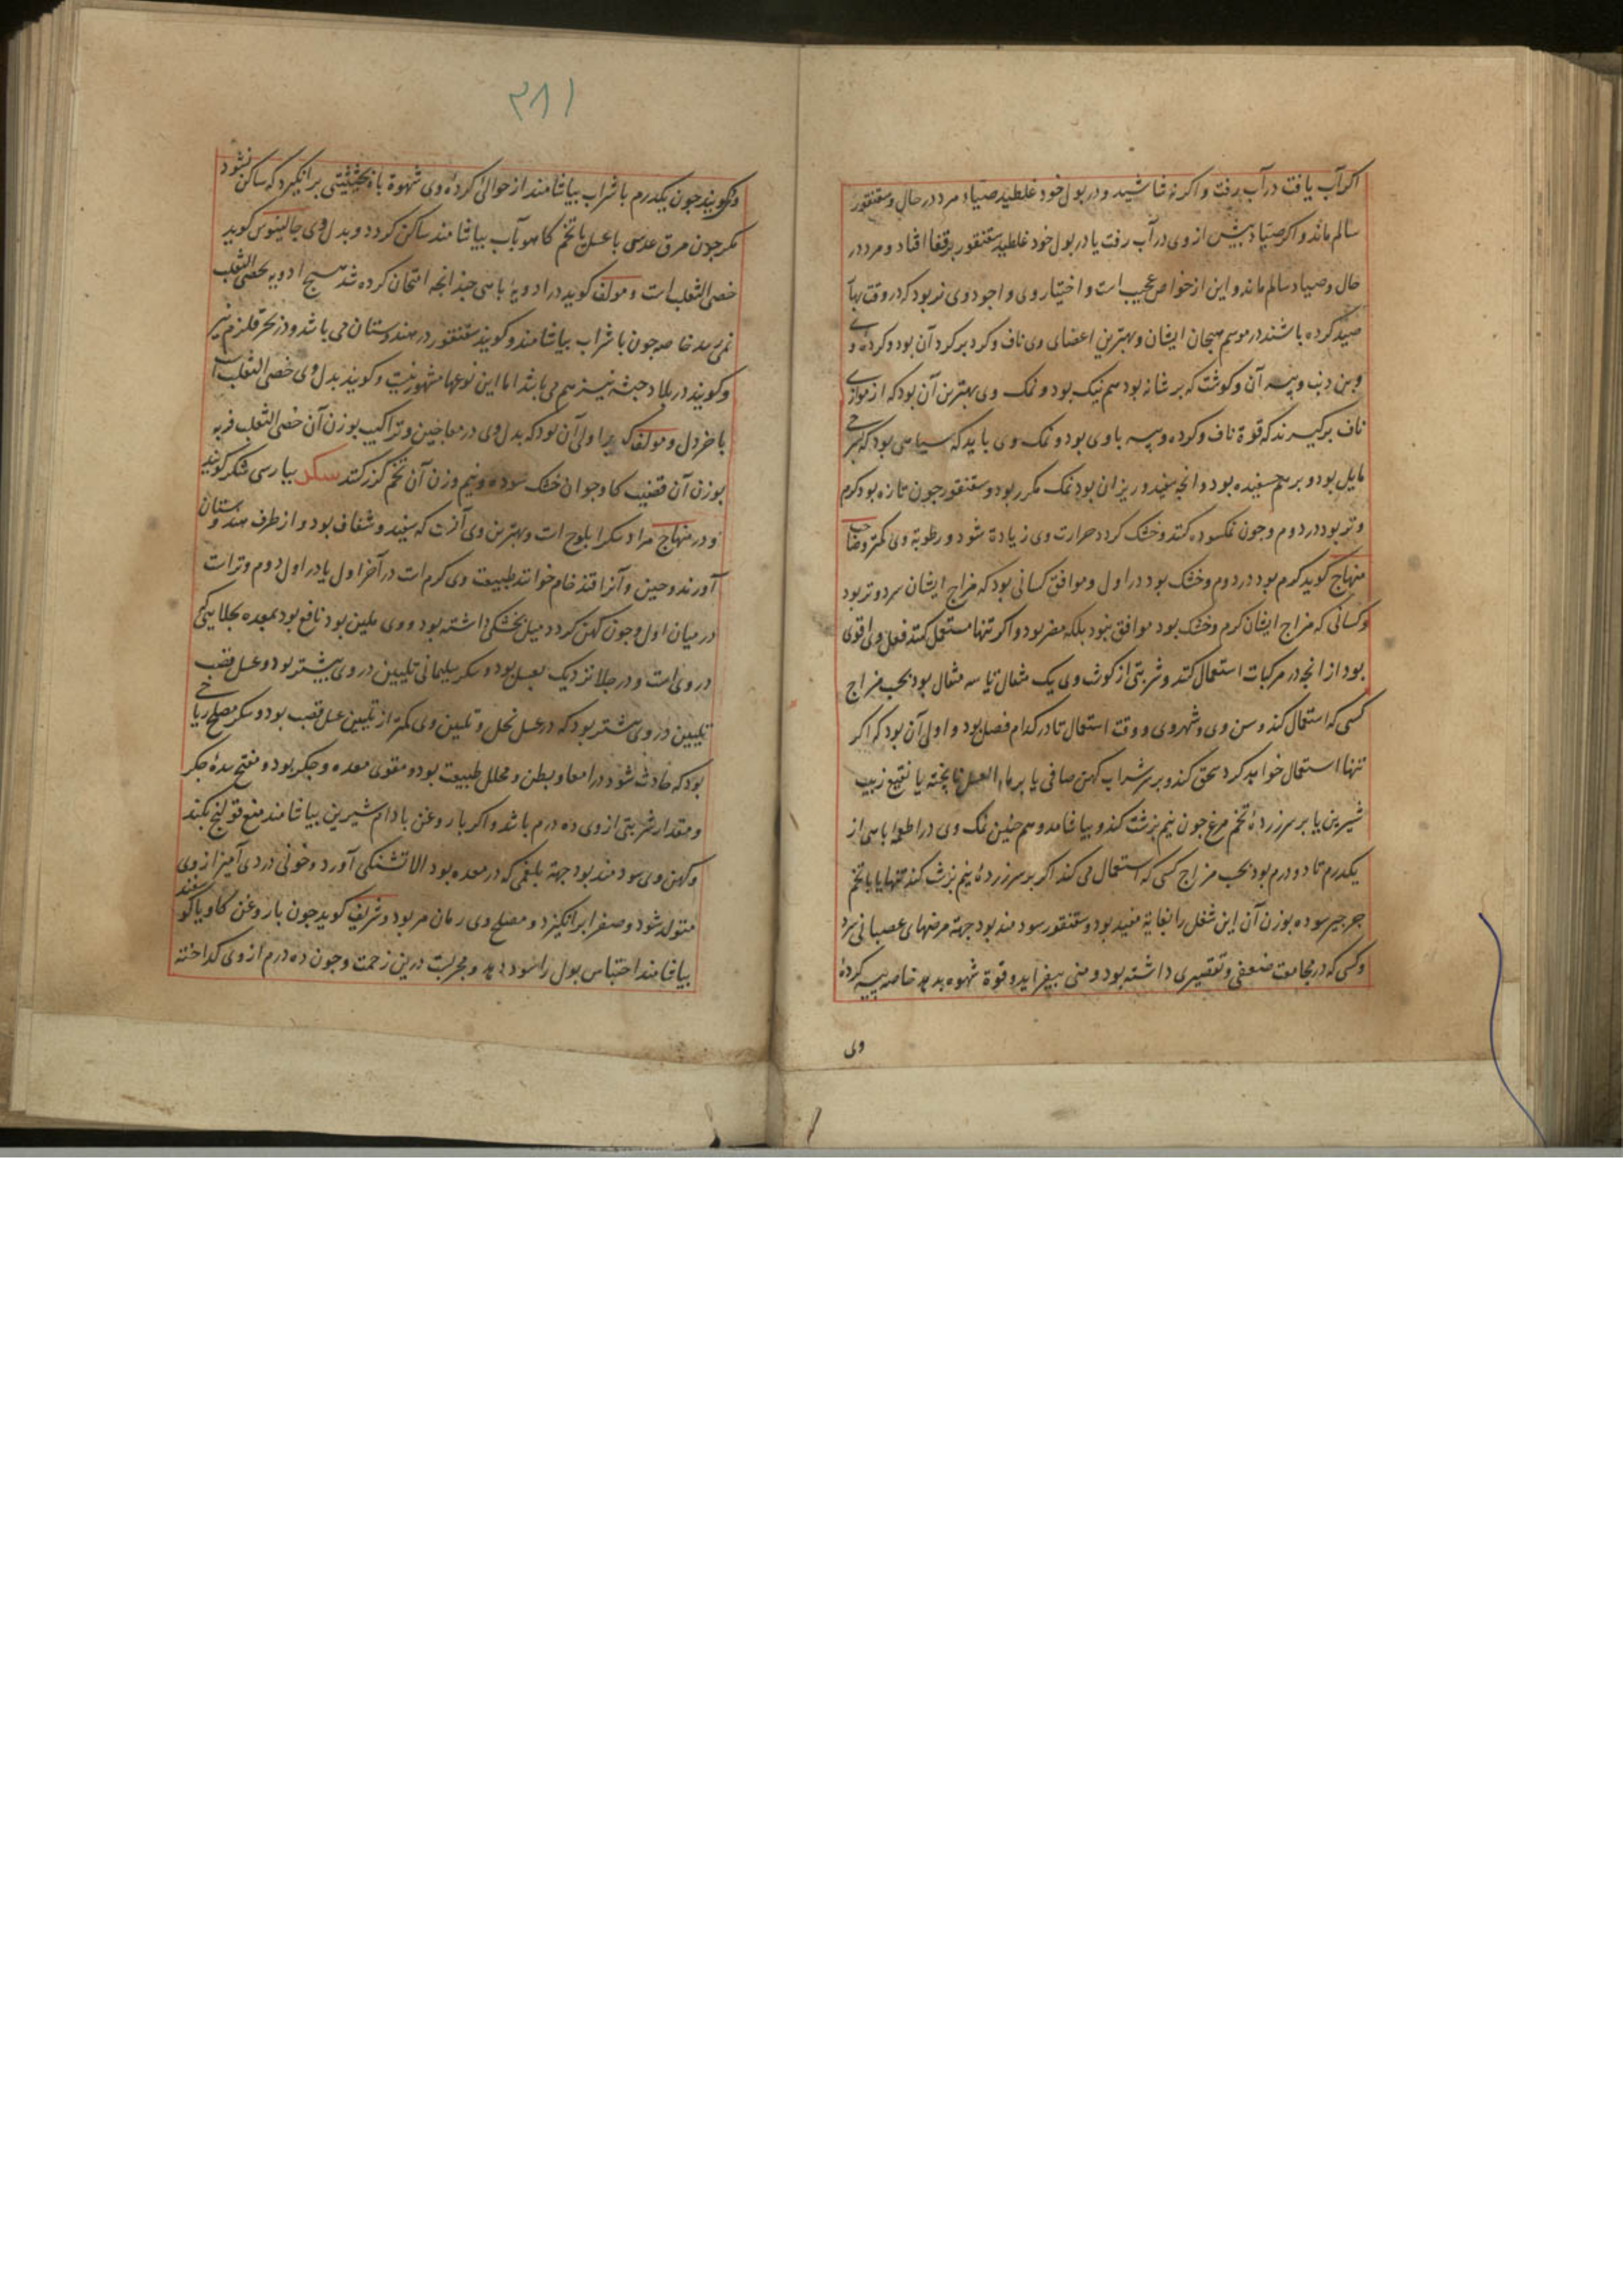 اکر آب یافت در آب رفت و اکر نه شاشید و در بول خود غلطید صیاد مرد در حال و سقنقور
سالم ماند و اکر صیاد پیش از وی در آب رفت یا در بول خود غلطید سقنقور بر قفا افتاد و مرد در
حال و صیاد سالم ماند و این از خواص عجیب است و اختیار وی و اجود وی نر بود که در وقت بهار
صید کرده باشند در موسم هیجان ایشان و بهترین اعضای وی ناف و کرد بر کرد آن بود و کرده وی
و بن ذنب و پیه آن و کوشت که بر شانه بود هم نیک بود و نمک وی بهترین آن بود که از موازی
ناف برکیرند که قوة ناف و کرده و پیه با وی بود و نمک وی باید که سیاهی بود که بسرخی
مایل بود و بر هم جسفیده بود و انجه سفید و ریزان بود نمک مکرر بود و سقنقور جون تازه بود کرم
و تر بود در دوم و جون نمکسوده کنند و خشک کردد حرارت وی زیادة شود و رطوبة وی کمتر و صاحب
منهاج کوید کرم بود در دوم و خشک بود در اول و موافق کسانی بود که مزاج ایشان سرد و تر بود
و کسانی که مزاج ایشان کرم و خشک بود موافق نبود بلکه مضر بود و اکر تنها مستعمل کنند فعل وی اقوی
بود از انجه در مرکبات استعمال کنند و شربتی از کوشت وی یک مثقال تا سه مثقال بود بحسب مزاج
کسی که استعمال کند و سن وی و شهر وی و وقت استعمال تا در کدام فصل بود و اولی آن بود که اکر
تنها استعمال خواهد کرد سحق کند و بر سر شراب کهن صافی یا بر ماء العسل نا پخته یا نقیع زبیب
شیرین یا بر سر زردهٔ تخم مرغ جون نیم برشت کند و بیاشامد و هم جنین نمک وی در اطعمه باهی از
یکدرم تا دو درم بود بحسب مزاج کسی که استعمال می کند اکر بر سر زردهٔ نیم برشت کند تنها یا با تخم
جرجیر سوده بوزن آن این شغل را بغایة مفید بود و سقنقور سودمند بود جهة مرضهای عصبانی سرد
و کسی که در مجامعت ضعفی و تقصیری داشته بود و منی بیفزاید و قوة شهوه بدهد خاصه پیه کردهٔ
وی
۳۸۱
و کویند جون یکدرم با شراب بیاشامند از حوالی کردهٔ وی شهوة باه بحیثیتی برانکیزد که ساکن نشود
مکر جون مرق عدس با عسل یا تخم کاهو بآب بیاشامند ساکن کردد و بدل وی جالینوس کوید
خصی الثعلب است و مولف کوید در ادویهٔ باهی جندانجه امتحان کرده شد هیچ ادویه بخصی الثعلب
نمی رسد خاصه جون با شراب بیاشامند و کویند سقنقور در هندوستان می باشد و در بحر قلزم نیز
و کویند در بلاد حبشه نیز هم می باشد اما این نوعها مشهور نیست و کویند بدل وی خصی الثعلب است
با خردل و مولف کوید اولی آن بود که بدل وی در معاجین و تراکیب بوزن آن خصی الثعلب فربه
بوزن آن قضیب کاو جوان خشک سوده و نیم وزن آن تخم کزر کنند سکر بپارسی شکر کویند
و در منهاج مراد سکر ابلوج است و بهترین وی آنست که سفید و شفاف بود و از طرف هندوستان
آورند و حین و آنرا قند خام خوانند طبیعت وی کرم است در آخر اول یا در اول دوم و تر است
در میان اول و جون کهن کردد میل بخشکی داشته بود و وی ملین بود نافع بود بمعده بجلایی که
در وی است و در جلا نزدیک بعسل بود و سکر سلیمانی تلیین در وی بیشتر بود و عسل قصب
تلیین در وی بیشتر بود که در عسل نحل و تلیین وی کمتر از تلیین عسل قصب بود و سکر مصلح ریاحی
بود که حادث شود در امعا و بطن و محلل طبیعت بود و مقوی معده و جکر بود و مفتح سدهٔ جکر
و مقدار شربتی از وی ده درم باشد و اکر با روغن بادام شیرین بیاشامند منع قولنج بکند
و کهن وی سودمند بود جهة بلغمی که در معده بود الا تشنکی آورد و خونی دردی آمیز از وی
متولد شود و صفرا برانکیزد و مصلح وی رمان مز بود و شریف کوید جون با روغن کاو یا کوسفند
بیاشامند احتباس بول را سود دهد و مجربست درین زحمت و جون ده درم از وی کداخته